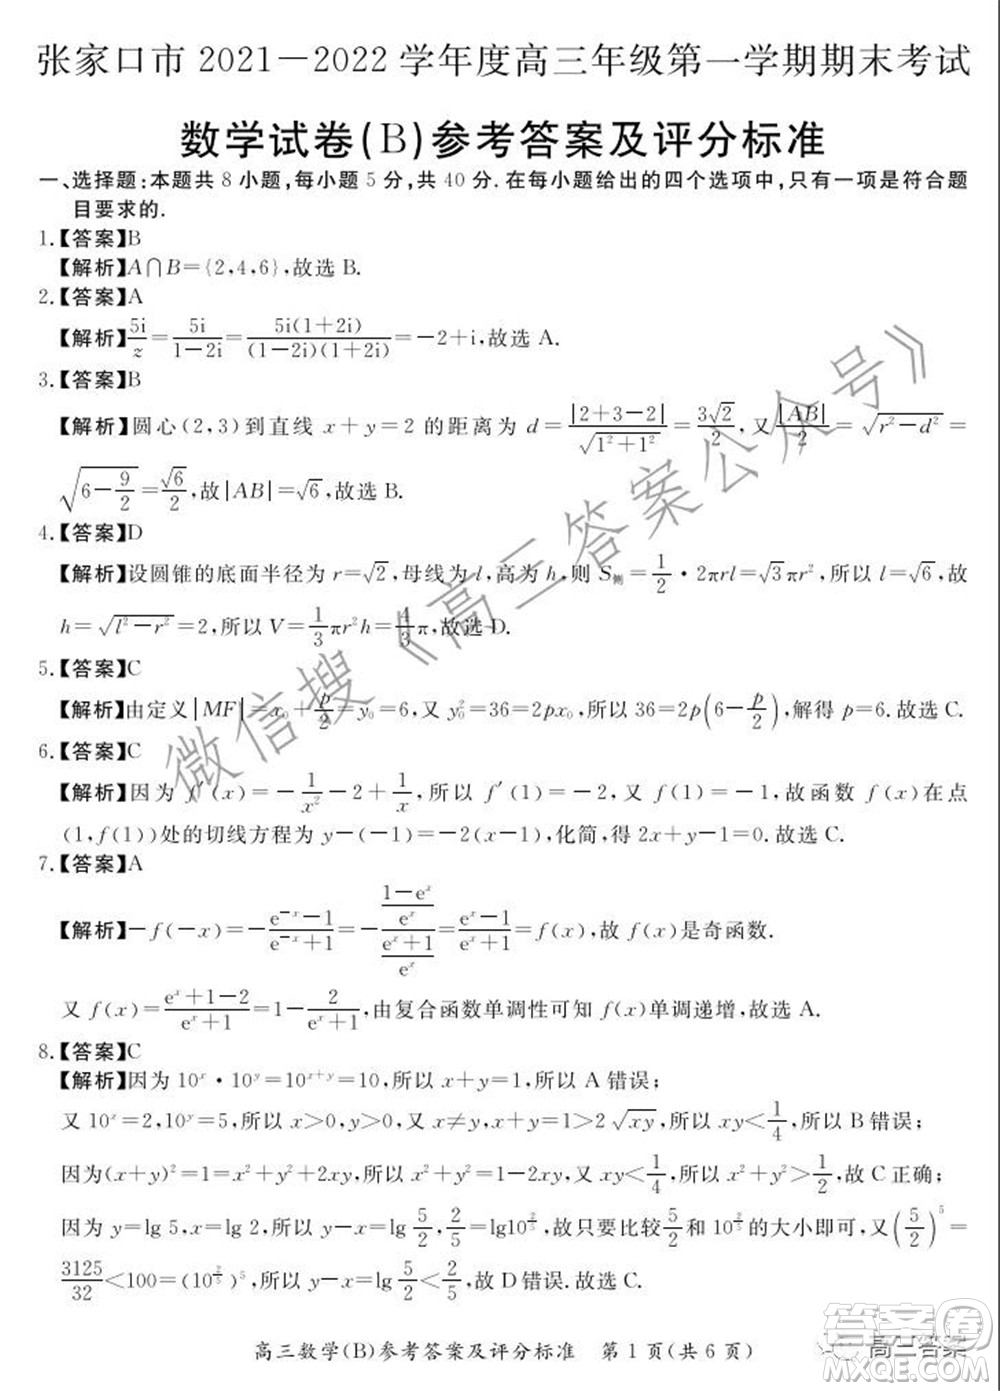 张家口市 2021—2022 学年度高三年级第一学期期末考试
数学试卷(B)参考答案及评分标准
一、选择题:本题共 8 小题,每小题 5 分,共 40 分. 在每小题给出的四个选项中,只有一项是符合题
目要求的.
1.【答案】B
【解析】A∩B={2,4,6},故选 B.
2.【答案】A
【解析】5i/z=5i/(1-2i)=5i(1+2i)/((1-2i)(1+2i))=-2+i,故选 A.
3.【答案】B
【解析】圆心(2,3)到直线 x+y=2 的距离为 d=|2+3-2|/√(1²+1²)=3√2/2,又|AB|/2=√(r²-d²)=
√(6-9/2)=√6/2,故|AB|=√6,故选 B.
4.【答案】D
【解析】设圆锥的底面半径为 r=√2,母线为 l,高为 h,则 S侧=1/2·2πrl=√3πr²,所以 l=√6,故
h=√(l²-r²)=2,所以 V=1/3πr²h=4/3π,故选 D.
5.【答案】C
【解析】由定义|MF|=x₀+p/2=y₀=6,又 y₀²=36=2px₀,所以 36=2p(6-p/2),解得 p=6.故选 C.
6.【答案】C
【解析】因为 f′(x)=-1/x²-2+1/x,所以 f′(1)=-2,又 f(1)=-1,故函数 f(x)在点
(1,f(1))处的切线方程为 y-(-1)=-2(x-1),化简,得 2x+y-1=0.故选 C.
7.【答案】A
【解析】-f(-x)=-(e⁻ˣ-1)/(e⁻ˣ+1)=-((1-eˣ)/eˣ)/((eˣ+1)/eˣ)=(eˣ-1)/(eˣ+1)=f(x),故 f(x)是奇函数.
又 f(x)=(eˣ+1-2)/(eˣ+1)=1-2/(eˣ+1),由复合函数单调性可知 f(x)单调递增,故选 A.
8.【答案】C
【解析】因为 10ˣ·10ʸ=10ˣ⁺ʸ=10,所以 x+y=1,所以 A 错误;
又 10ˣ=2,10ʸ=5,所以 x>0,y>0,又 x≠y,x+y=1>2√(xy),所以 xy<1/4,所以 B 错误;
因为(x+y)²=1=x²+y²+2xy,所以 x²+y²=1-2xy,又 xy<1/4,所以 x²+y²>1/2,故 C 正确;
因为 y=lg 5,x=lg 2,所以 y-x=lg 5/2,2/5=lg10^(2/5),故只要比较5/2和 10^(2/5)的大小即可,又(5/2)⁵=
3125/32<100=(10^(2/5))⁵,所以 y-x=lg 5/2<2/5,故 D 错误.故选 C.
高三数学(B)参考答案及评分标准 第 1 页(共 6 页)
微信搜《高三答案公众号》
高三答案
答案圈
MXQE.COM